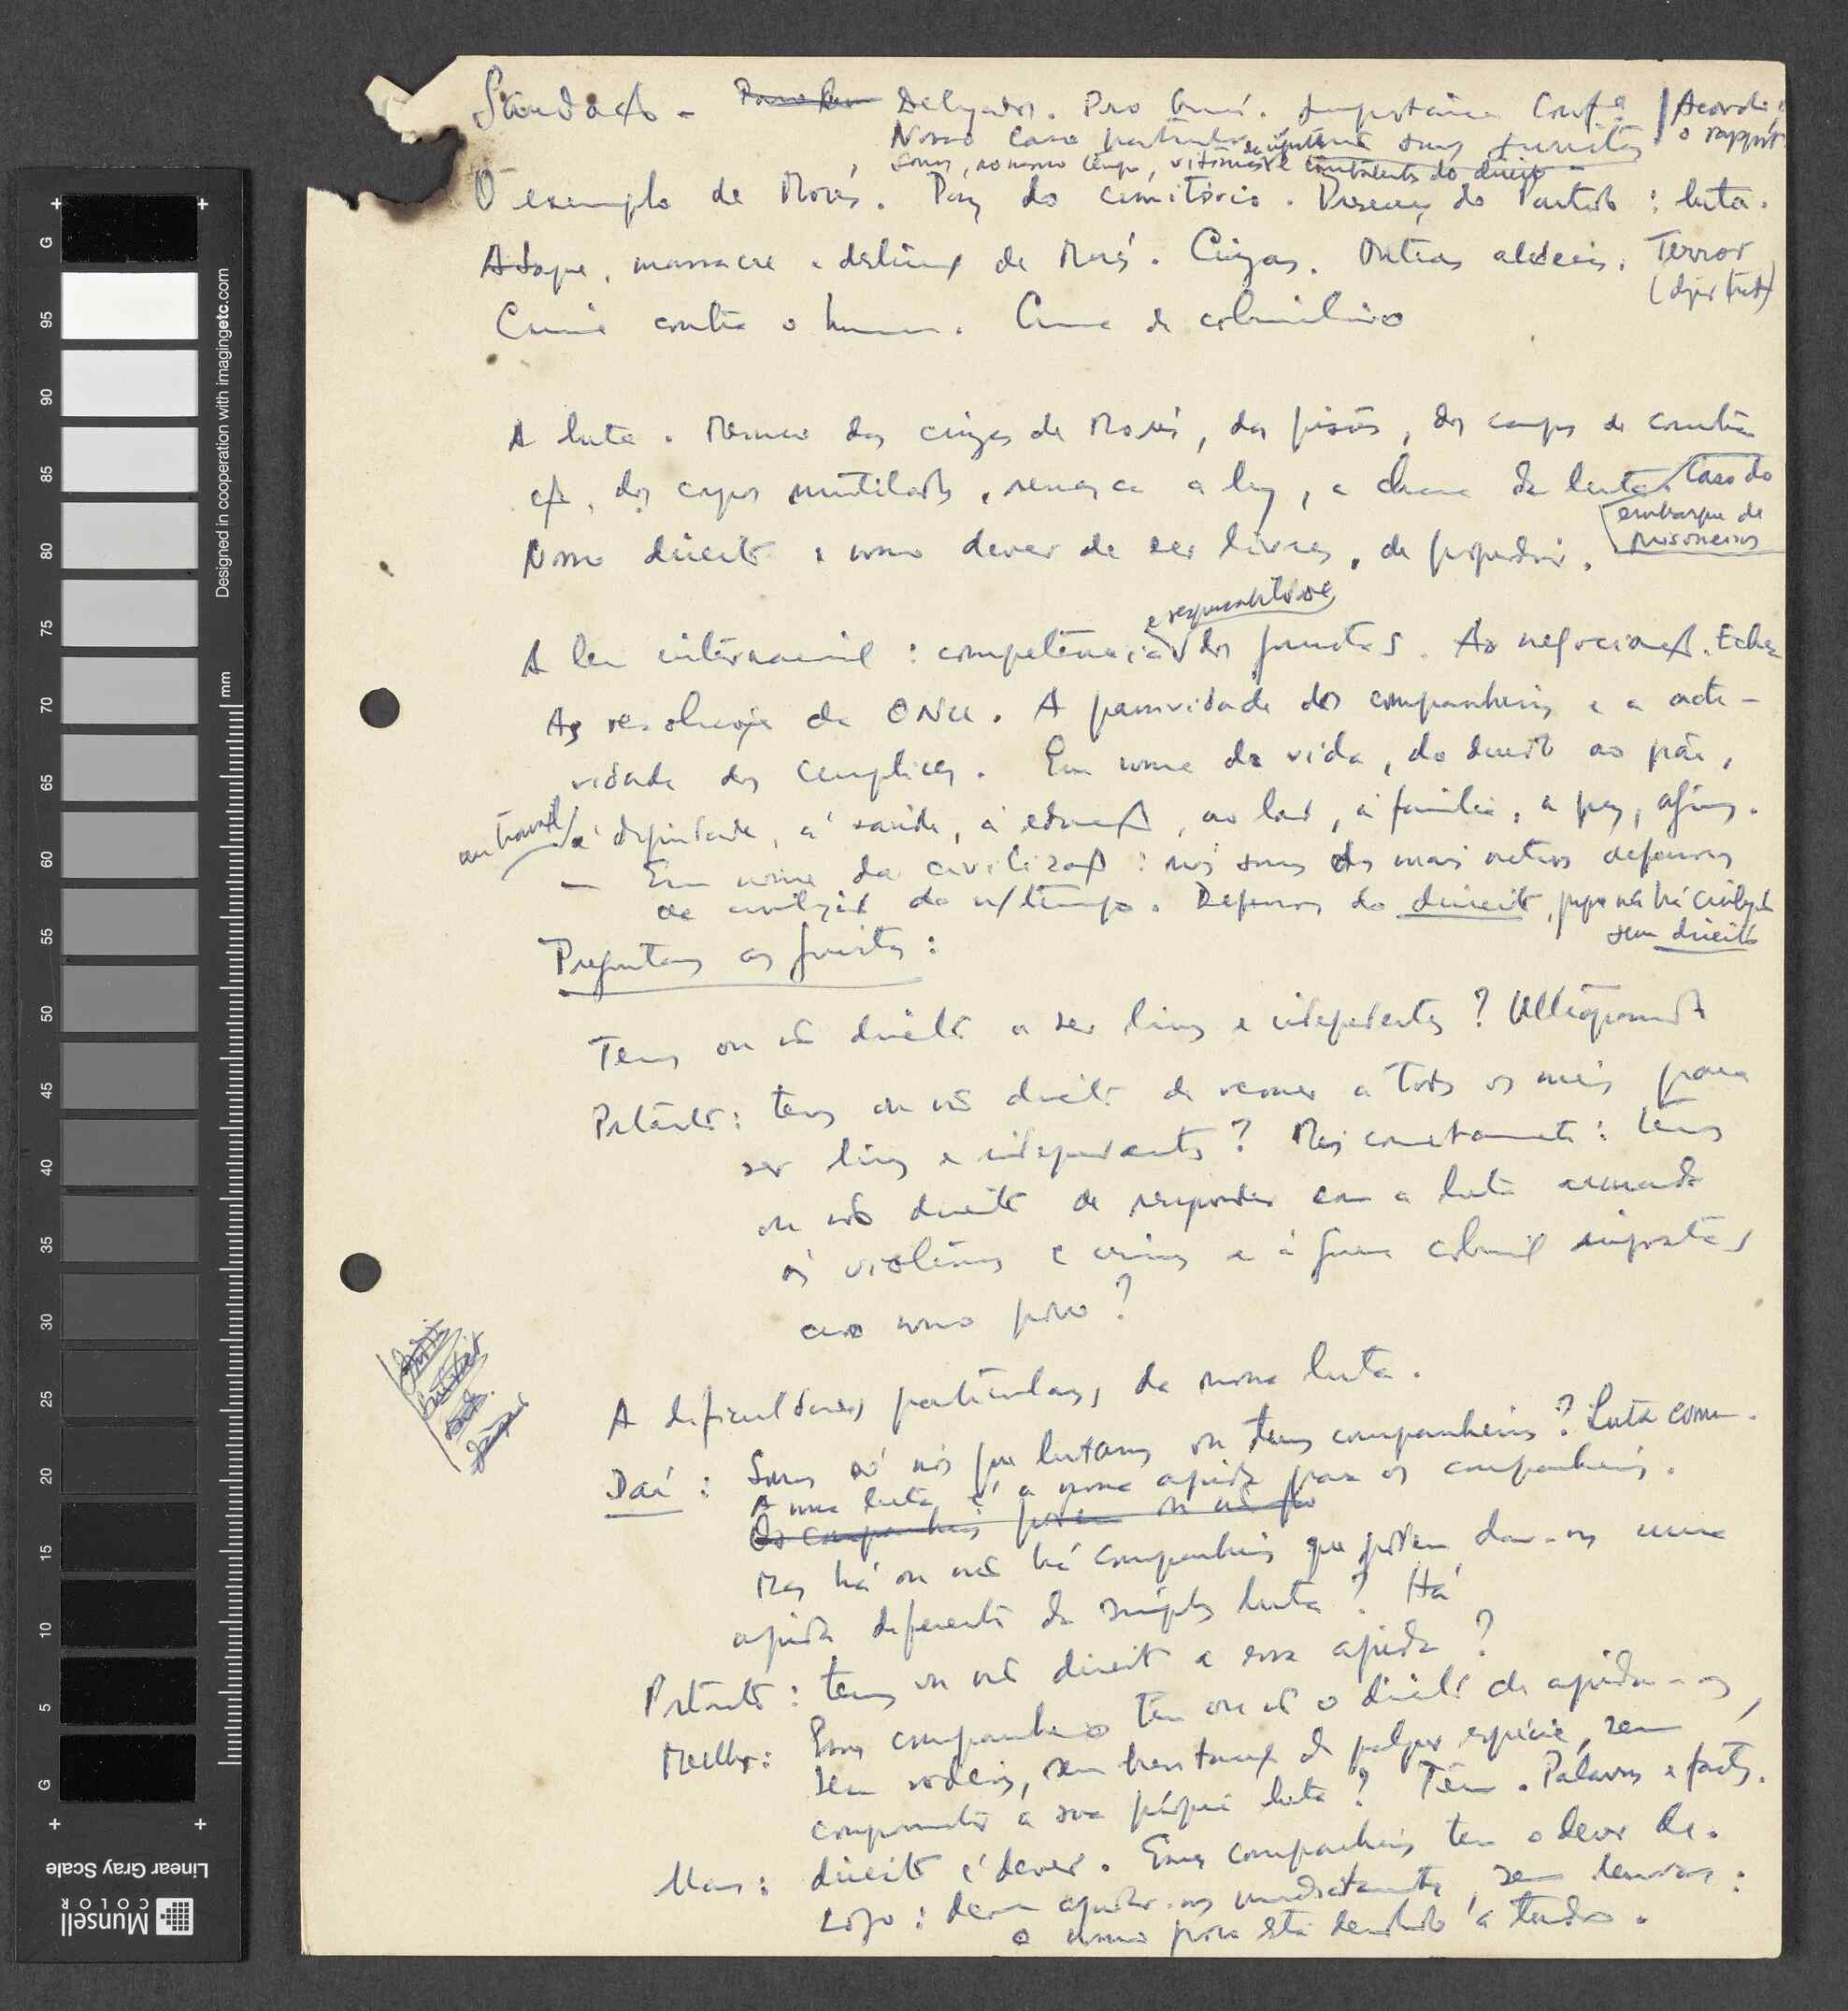 Saudação - Delegados. Povo Guiné. Importância Conf.ª / Acordo
Nosso caso particular somos juristas o rapport
somos, ao mesmo tempo, vítimas e combatente do direito
O exemplo de Morés. Paz do cimitério. Presença do Partido : luta.
Ataque, massacre e destruição de Morés. Cinzas. Outras aldeias. Terror
Crime contra o homem. Crime de colonialismo
A luta. Mesmo das cinzas de Morés, das prisões, dos campos de concentra
ção, dos corpos mutilados, renasce a luz, a chama da luta. Caso do
embarque de
prisoneiros
Nosso direito e nosso dever de ser livres, de progredir.
e responsabilidade
A lei internacional : competência dos juristas. As negociações.
As resoluções da ONU. A passividade dos companheiros e a acti-
vidade dos cumplices. Em nome da vida, do direito ao pão,
ao trabalho à dignidade, à saúde, à educação, ao lar, à família, a paz,
- Em nome da civilização : nós somos dos mais activos defensores
da civilização do n/tempo. Defensores do direito, porque não há civilização
sem direito
Perguntamos aos juristas :
Temos ou não direito a ser livres e independentes ?
Portanto : temos ou não direito de recorrer a todos os meios para
ser livres e independentes ? Mais concretamente : temos
ou não direito de responder com a luta armada
às violências e crimes e à guerra colonial impostas
ao nosso povo ?
A dificuldades particulares da nossa luta.
Daí : Somos só nós que lutamos ou temos companheiros ? Luta comum.
A nossa luta é a nossa ajuda para os companheiros.
Os companheiros podem ou não
Mas há ou não há companheiros que podem dar-nos uma
ajuda diferente da simples luta ? Há
Portanto : temos ou não direito a essa ajuda ?
Melhor : Esses companheiros têm ou não o direito de ajudar-nos,
sem rodeios, sem hesitações de qualquer espécie, sem
comprometer a sua própria luta ? Têm. Palavras e factos.
Mas : direito é dever. Esses companheiros tem o dever de.
Logo : devem ajudar-nos imediatamente, sem demoras :
o nosso povo está decidido a tudo.
Designed in cooperation with imagingetc.com
mm
G
95
90
85
80
75
70
65
60
55
50
45
40
35
30
25
20
15
10
5
G
Linear Gray Scale
Munsell
COLOR